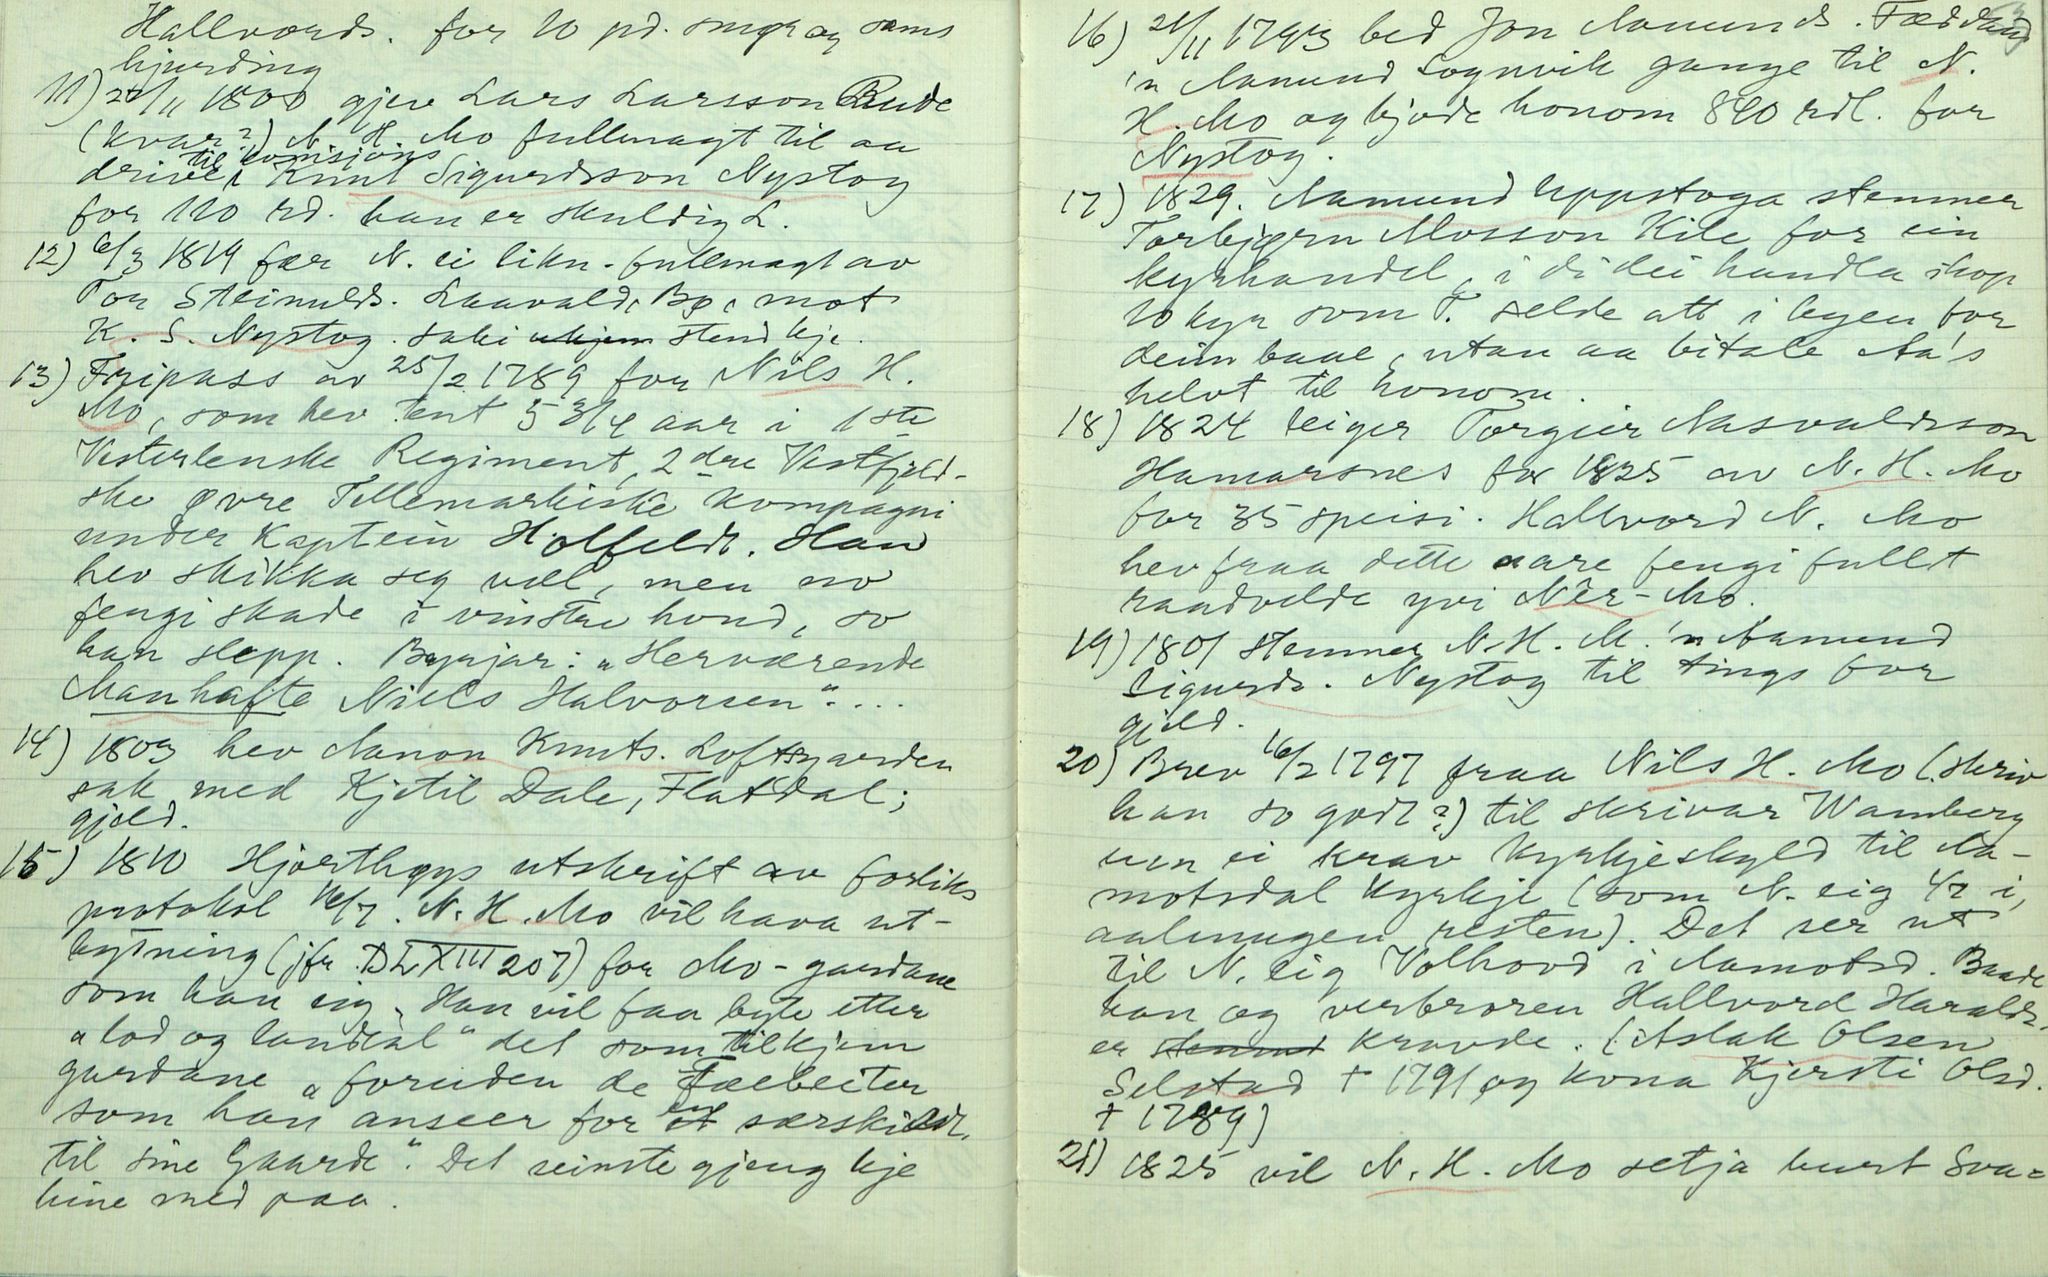 Hallvords. for 10 pd. smør og sams
hjurding
11) 24/11 1808 gjev Lars Larsson Bude
(kvar?) N. H. Mo fullmagt til aa
drive til komisjons Knut Sigurdsson Nystog
for 110 rd. han er skuldig L.
12) 6/3 1819 fær N. ei likn. fullmagt av
Tor Steinulds. Laavald, Bø, mot
K. S. Nystog. saki ukjem stend kje.
13) Fripass av 25/2 1789 for Nils H.
Mo, som hev tent 5 3/4 aar i 1ste
Vesterlenske Regiment, 2dre Vestfjeld-
ske øvre Tellemarkiske kompagni
under Kaptein Holfeldt. Han
hev skikka seg væl, men no
fengi skade i vinstre hond, so
han slepp. Byrjar: „Herværende
Manhafte Niels Halvorsen“....
14) 1803 hev Aanon Knuts. Loftsgarden
sak med Kjetil Dale, Flatdal;
gjeld.
15) 1810 Hjorthøys utskrift av forliks
protokol 16/7. N. H. Mo vil hava ut-
bytning (jfr DL XIII 207) for Mo-gardane
som han eig. Han vil faa byte etter
„lod og landtal“ det som tilkjem
gardane „foruden de Fæbeiter
som han anseer for en særskildt
til sine Gaarde“. Det seinste gjeng kje
hine med paa.
16) 21/11 1793 bed Jon Aamunds. Fædde
'n Aamund Sognvik gange til N.
H. Mo og bjode honom 840 rdl. for
Nystog.
17) 1829. Aamund Uppstoga stemner
Torbjørn Mosson Kile for ein
kyrhandel, i di dei handla ihop
10 kyr som T. selde att i byen for
deim baae, utan aa bitale Aa's
helvt til honom.
18) 1824 leiger Torgeir Aasvaldsson
Hamarsnes for 1825 av N. H. Mo
for 35 speisi. Hallvord N. Mo
hev fraa dette aare fengi fullt
raadvelde yvi Ner-Mo.
19) 1801 stemner N. H. M. 'n Aamund
Sigurds. Nystog til tings for
gjeld.
20) Brev 16/2 1797 fraa Nils H. Mo (skriv
han so godt?) til skrivar Wamberg
um ei krav kyrkjeskyld til Aa-
motsdal kyrkje (som N. eig 1/2 i,
aalmugen resten). Det ser ut
til N. eig Volhovd i Aamotsd. Baade
han og verbroren Hallvord Haralds.
er stemnd kravde. (Aslak Olsen
Selstad † 1791 og kona Kjersti Olsd.
† 1789)
21) 1825 vil N. H. Mo setja burt Sva=